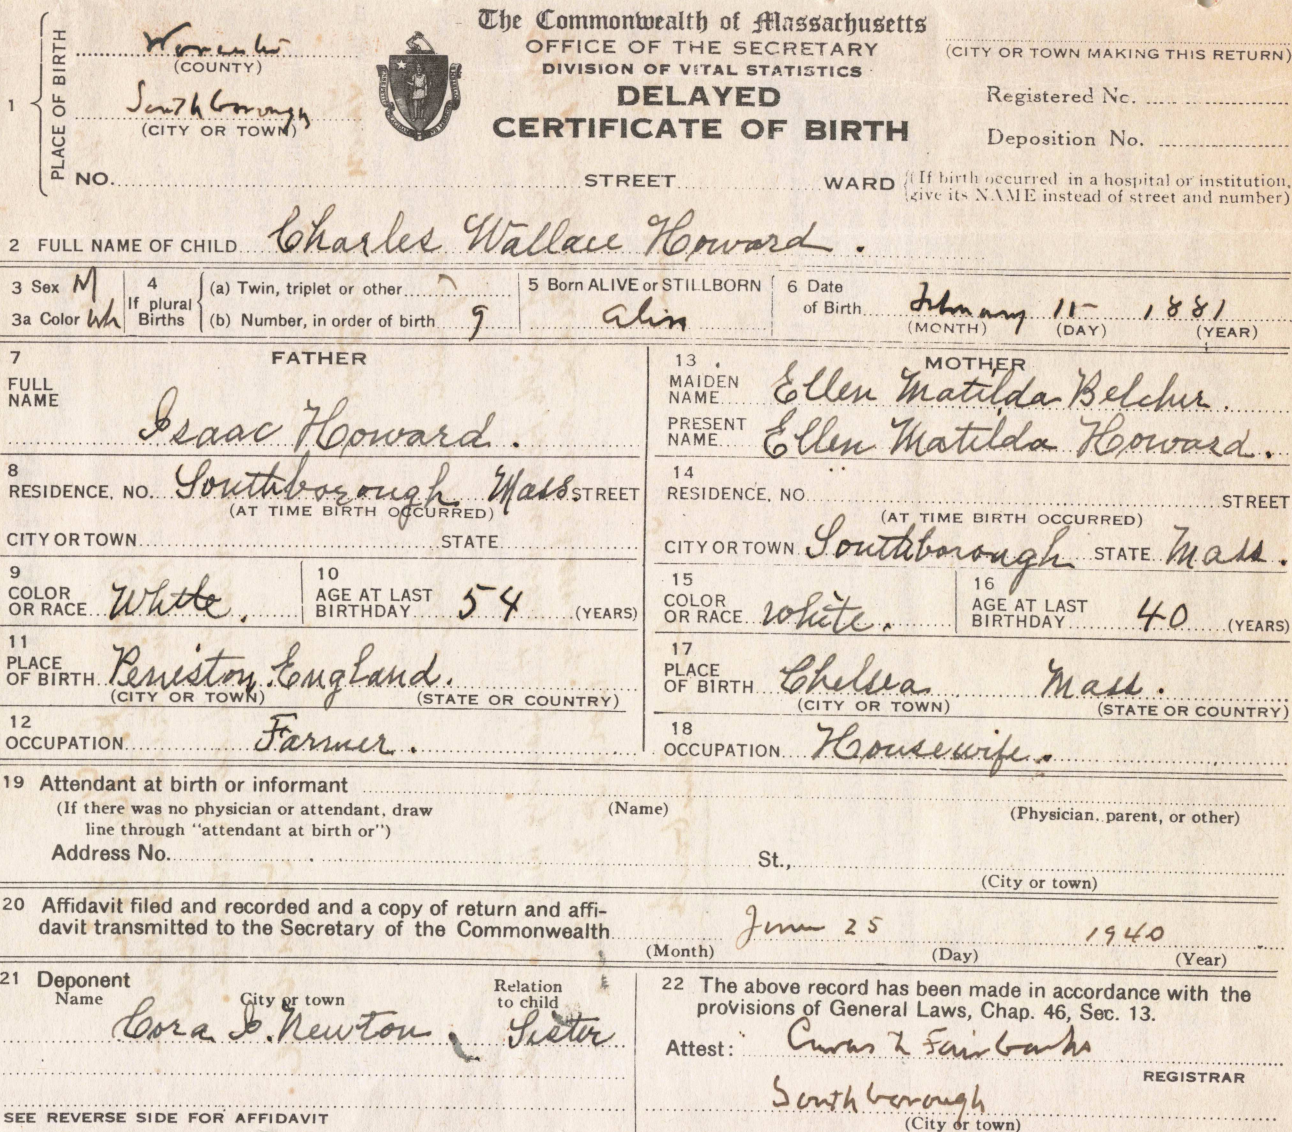 The Commonwealth of Massachusetts
OFFICE OF THE SECRETARY
DIVISION OF VITAL STATISTICS
DELAYED
CERTIFICATE OF BIRTH
(CITY OR TOWN MAKING THIS RETURN)
Registered No.
Deposition No.
1 PLACE OF BIRTH
Worcester
(COUNTY)
Southborough
(CITY OR TOWN)
NO. STREET WARD (If birth occurred in a hospital or institution, give its NAME instead of street and number)
2 FULL NAME OF CHILD Charles Wallace Howard.
3 Sex M
3a Color Wh
4 If plural Births
(a) Twin, triplet or other
(b) Number, in order of birth 9
5 Born ALIVE or STILLBORN
alive
6 Date of Birth February 15 1881
(MONTH) (DAY) (YEAR)
FATHER
7 FULL NAME
Isaac Howard.
8 RESIDENCE, NO. Southborough Mass. STREET
(AT TIME BIRTH OCCURRED)
CITY OR TOWN STATE
9 COLOR OR RACE White.
10 AGE AT LAST BIRTHDAY 54 (YEARS)
11 PLACE OF BIRTH Peniston England.
(CITY OR TOWN) (STATE OR COUNTRY)
12 OCCUPATION Farmer.
MOTHER
13 MAIDEN NAME Ellen Matilda Belcher.
PRESENT NAME Ellen Matilda Howard.
14 RESIDENCE, NO. STREET
(AT TIME BIRTH OCCURRED)
CITY OR TOWN Southborough STATE Mass.
15 COLOR OR RACE white.
16 AGE AT LAST BIRTHDAY 40 (YEARS)
17 PLACE OF BIRTH Chelsea Mass.
(CITY OR TOWN) (STATE OR COUNTRY)
18 OCCUPATION Housewife.
19 Attendant at birth or informant
(If there was no physician or attendant, draw (Name) (Physician, parent, or other)
line through "attendant at birth or")
Address No. St.,
(City or town)
20 Affidavit filed and recorded and a copy of return and affi-
davit transmitted to the Secretary of the Commonwealth June 25 1940
(Month) (Day) (Year)
21 Deponent
Name City or town Relation to child
Cora I. Newton. Sister
SEE REVERSE SIDE FOR AFFIDAVIT
22 The above record has been made in accordance with the
provisions of General Laws, Chap. 46, Sec. 13.
Attest: Fairbanks
REGISTRAR
Southborough
(City or town)